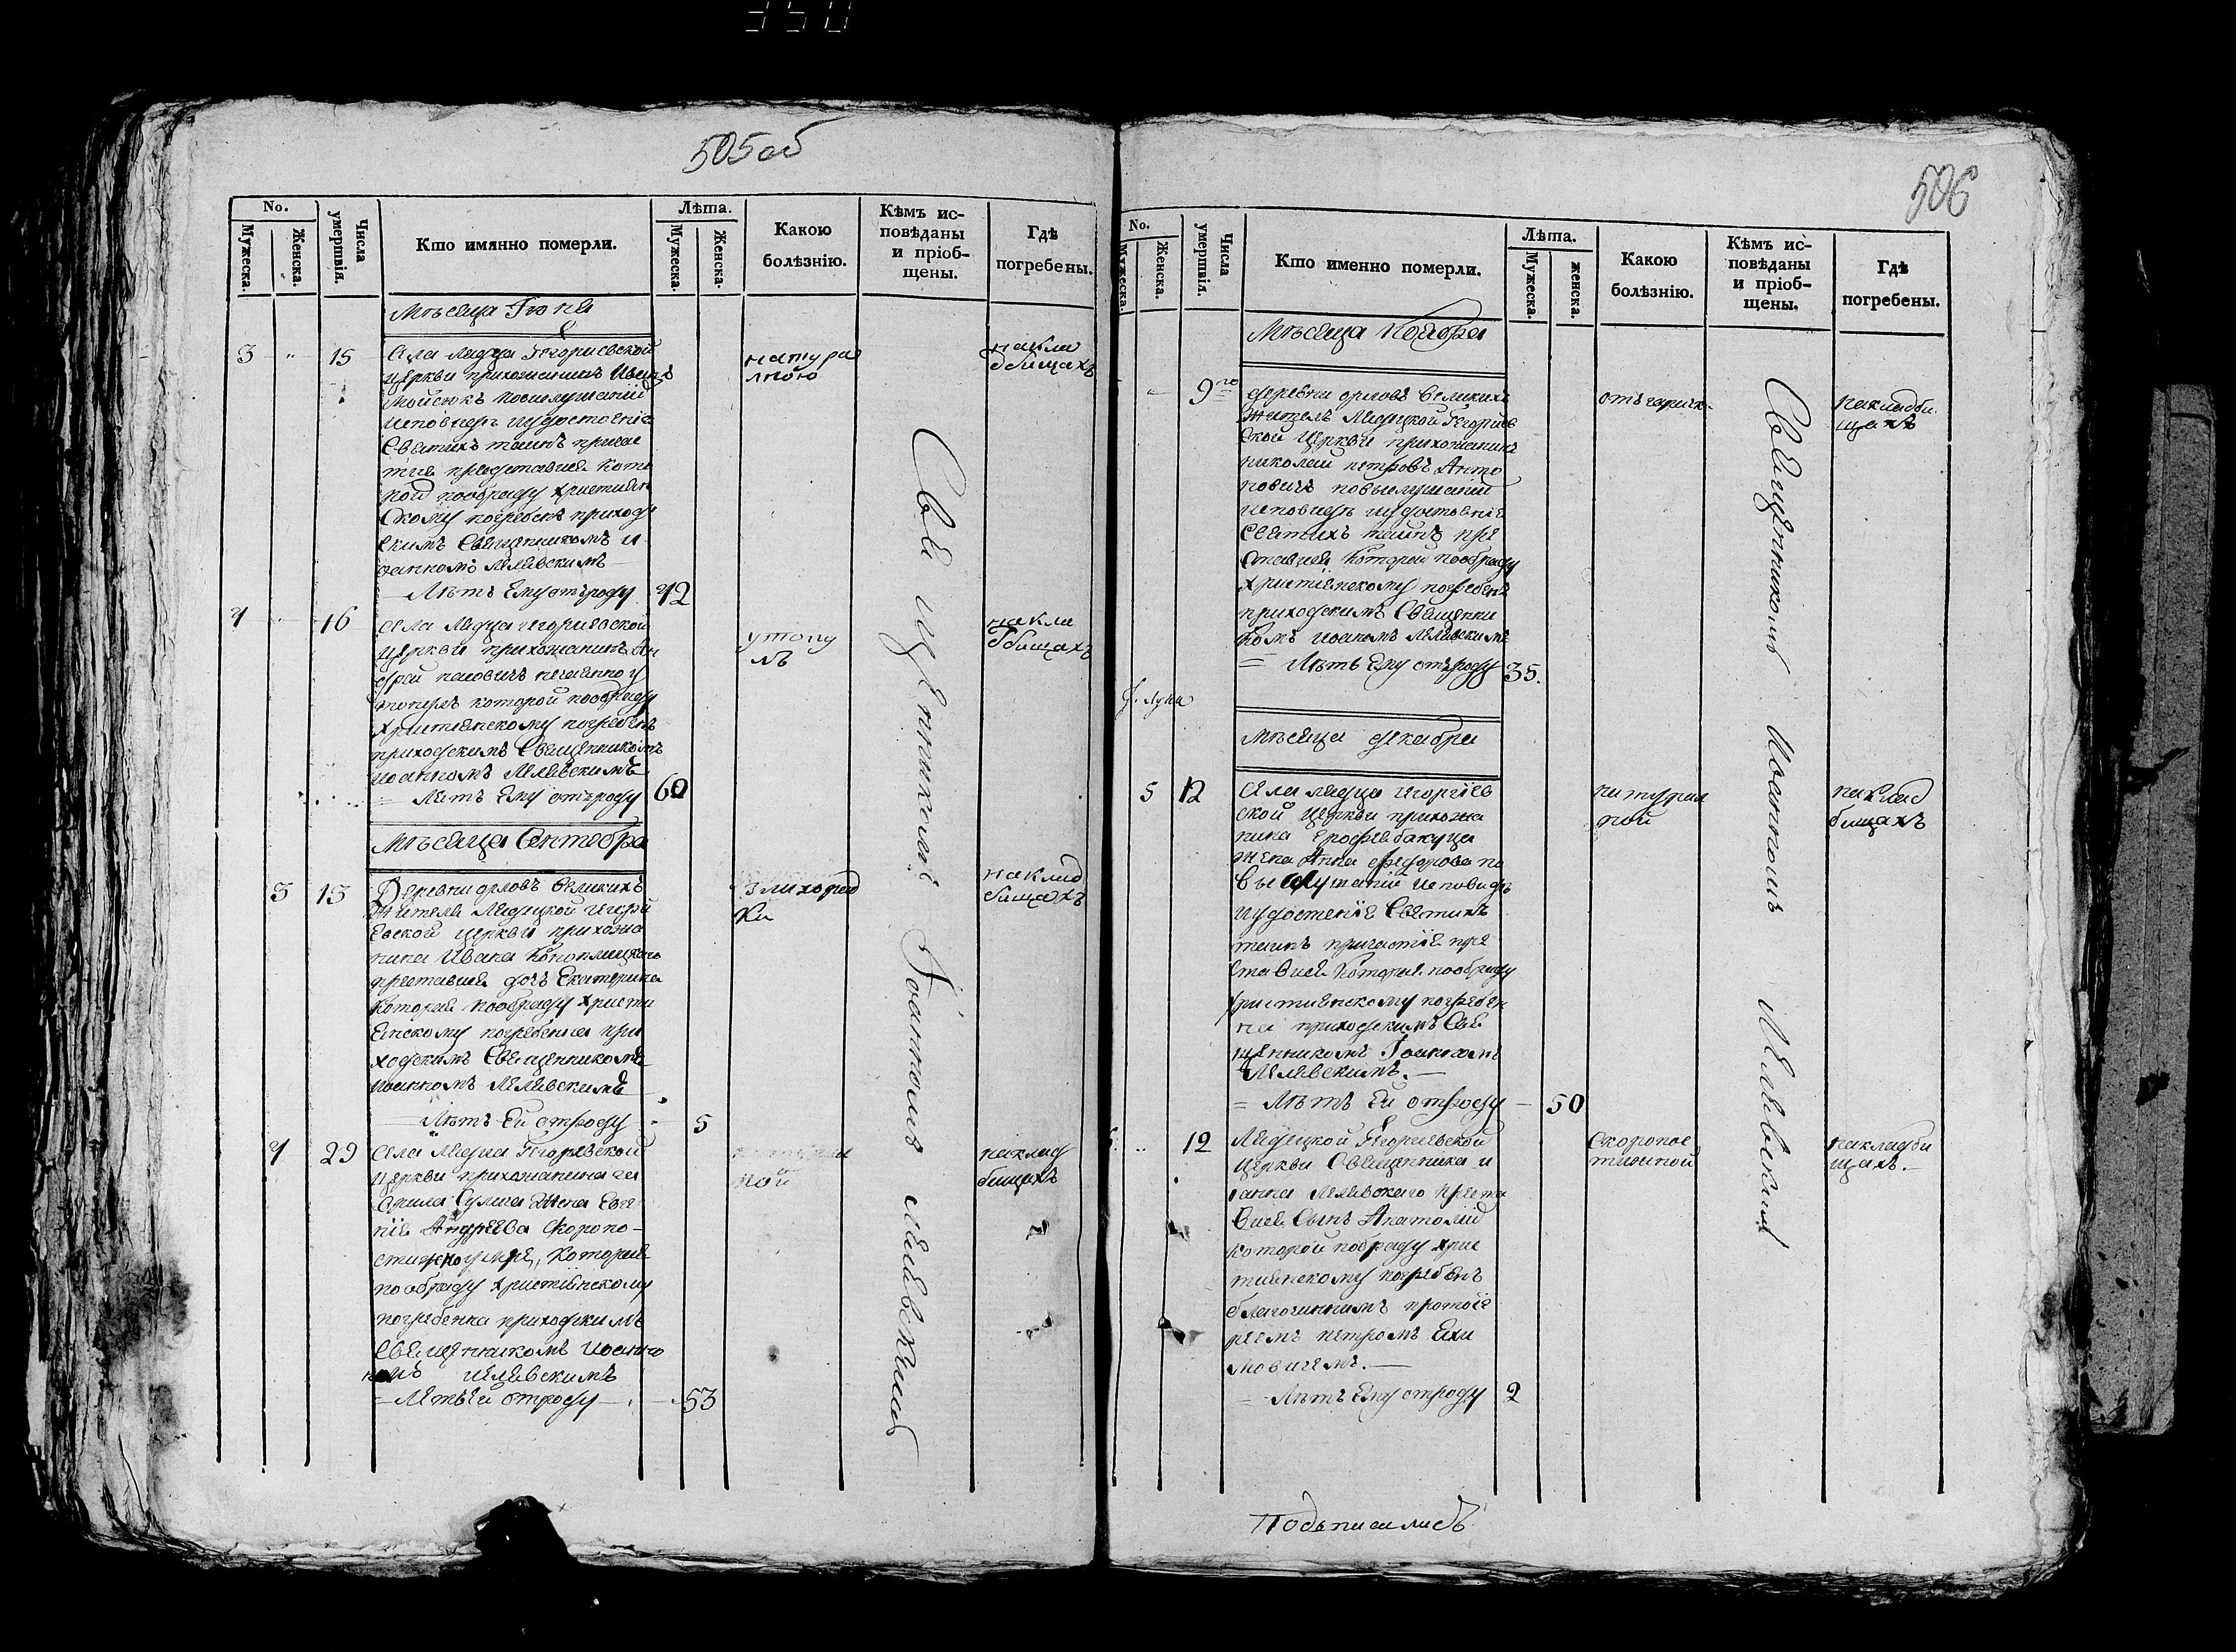 505об
No.
Мужеска.
Женска.
Числа умертвія.
Кто имянно померли.
Лѣта.
Мужеска.
Женска.
Какою
болѣзнію.
Кѣмъ ис-
повѣданы
и пріоб-
щены.
Гдѣ
погребены.
Мѣсяца Іюня
3 15
Села Лядца Георгиевской
церкви прихожанинъ Иванъ
по вислушаніи
исповѣди и удостоеніе
Святихъ таинъ причас
тия преставися кото
рой по обряду християн
скому погребенъ приход
скимъ Священникомъ и
оанномъ Лелявскимъ
Лѣтъ Ему отъ роду 72
натурал
ною
накла
дбищахъ
4 16
Села Лядца Игориевской
церкви прихожанинъ Ан
дрей нечаянно у
которой по обряду
християнскому погребенъ
приходскимъ Священникомъ
иоанномъ Лелявскимъ
Лѣтъ Ему отъ роду 60
утону
лъ
накла
дбищахъ
Мѣсяца Сентебра
3 13
Деревни орловъ великихъ
жителя Лядецкой Игори
евской церкви прихожа
нина Ивана
преставися дочъ Екатерина
которая по обряду христи
янскому погребенна при
ходскимъ Священникомъ
иоанномъ Лелявскимъ
Лѣтъ Ей от роду 5
з лихорад
ки
наклад
бищахъ
4 29
Села Лядца Георгиевской
церкви прихожанина га
врила жена Евге
ніе Андреева скоропо-
стижно умре, которая
по обряду християнскому
погребенна приходскимъ
Священникомъ иоанно
номъ Лелявскимъ
Лѣтъ Ей от роду 53
ной
наклад
бищахъ
Священникомъ Іоанномъ Лелявскимъ
506
No.
Мужеска.
Женска.
Числа умертвія.
Кто именно померли.
Лѣта.
Мужеска.
женска.
Какою
болѣзнію.
Кѣмъ ис-
повѣданы
и пріоб-
щены.
Гдѣ
погребены.
Мѣсяца Ноября
9го
деревни орловъ великихъ
житель Лядецкой Георгиев
ской церкви прихожанинъ
николай петровъ Анто
новичъ по вислушаніи
исповѣди и удостоеніе
Святихъ таинъ пре
ставися которой по обряду
християнскому погребенъ
приходскимъ Священни
комъ иоаномъ Лелявскимъ
= Лѣтъ Ему отъ роду 35.
отъ
накладби
щахъ
Мѣсяца декабря
5 12
Села Лядца Игоргіев
ской церкви прихожа
нина Ерофея бакуца
жена Анна Федорова по
вислушаніи исповидъ
и удостоеніе Святихъ
таинъ причастіе пре
ставися которая по обряду
християнскому погребен
на приходскимъ Свя
щенникомъ Іоанномъ
Лелявскимъ.
= Лѣтъ Ей от роду 50
натурал
ной
наклад
бищахъ
12
Лядецкой Георгиевской
церкви Священника и
оанна Лелявскаго преста
вися Сынъ Анатолій
которой по обряду хрис
тиянскому погребенъ
благочиннимъ протоіе
реемъ петромъ Ехи
мовичемъ.
= Лѣтъ Ему от роду 2
скоропос
тижной
накладби
щахъ.
Священникомъ Иоанномъ Лелявскимъ
Подьписались